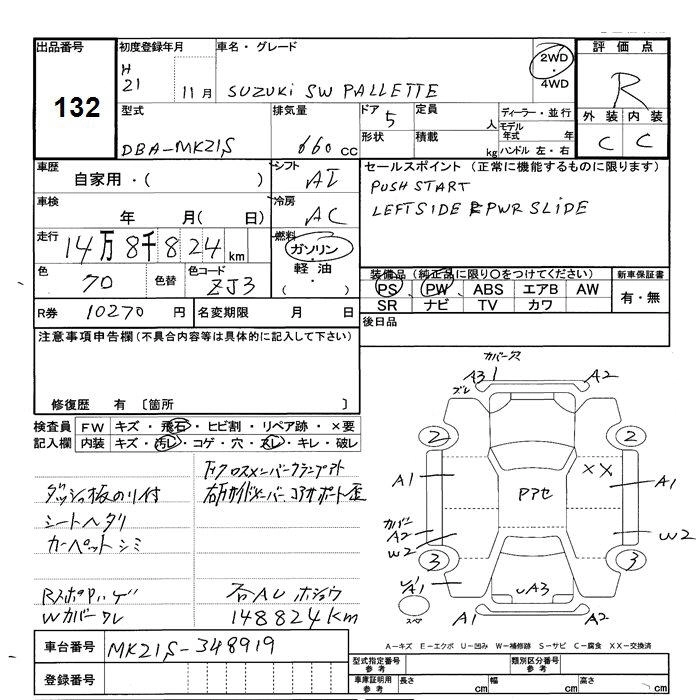 出品番号
132
初度登録年月
H
21
11月
車名・グレード
SUZUKI SW PALLETTE
2WD
・
4WD
評価点
R
外装 内装
C C
型式
DBA-MK21S
排気量
660 cc
ドア 5
形状
定員
人
積載
kg
ディーラー・並行
モデル
年式
年
ハンドル 左・右
車歴
自家用・( )
シフト
AI
セールスポイント (正常に機能するものに限ります)
PUSH START
LEFT SIDE PWR SLIDE
車検
年 月( 日)
冷房
AC
走行
14万8千824km
燃料
ガソリン
軽油
・
( )
色
70
色替
色コード
ZJ3
装備品 (純正品に限り○をつけてください)
PS PW ABS エアB AW
SR ナビ TV カワ
新車保証書
有・無
R券 10270 円
名変期限 月 日
後日品
注意事項申告欄(不具合内容等は具体的に記入して下さい)
修復歴 有 〔箇所 〕
検査員
記入欄
FW キズ・飛石・ヒビ割・リペア跡・×要
内装 キズ・汚レ・コゲ・穴・スレ・キレ・破レ
ダッシュ板のり付
シートヘタリ
カーペットシミ
Wカバーワレ
148824km
カバー穴
A3 1 A2
ズレ
2 2
A1
××
A1
Pアセ
カバー
A2
W2
W2
3 3
A1
A3
スペ
A1 A2
車台番号
MK21S-348919
登録番号
A-キズ E-エクボ U-凹み W-補修跡 S-サビ C-腐食 XX-交換済
型式指定番号
参考
類別区分番号
参考
車庫証明用
参考
長さ cm
幅 cm
高さ cm